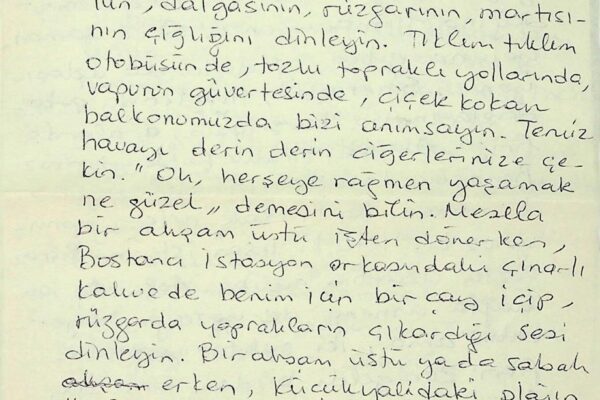 tün, dalgasının, rüzgarının, martısı-
nın çığlığını dinleyin. Tıklım tıklım
otobüsünde, tozlu topraklı yollarında,
vapurun güvertesinde, çiçek kokan
balkonumuzda bizi anımsayın. Temiz
havayı derin derin ciğerlerinize çe-
kin. "Oh, herşeye rağmen yaşamak
ne güzel" demesini bilin. Mesela
bir akşam üstü işten dönerken,
Bostancı istasyon arkasındaki çınarlı
kahvede benim için bir çay içip,
rüzgarda yaprakların çıkardığı sesi
dinleyin. Bir akşam üstü yada sabah
akşam erken, Küçükyalıdaki plajın